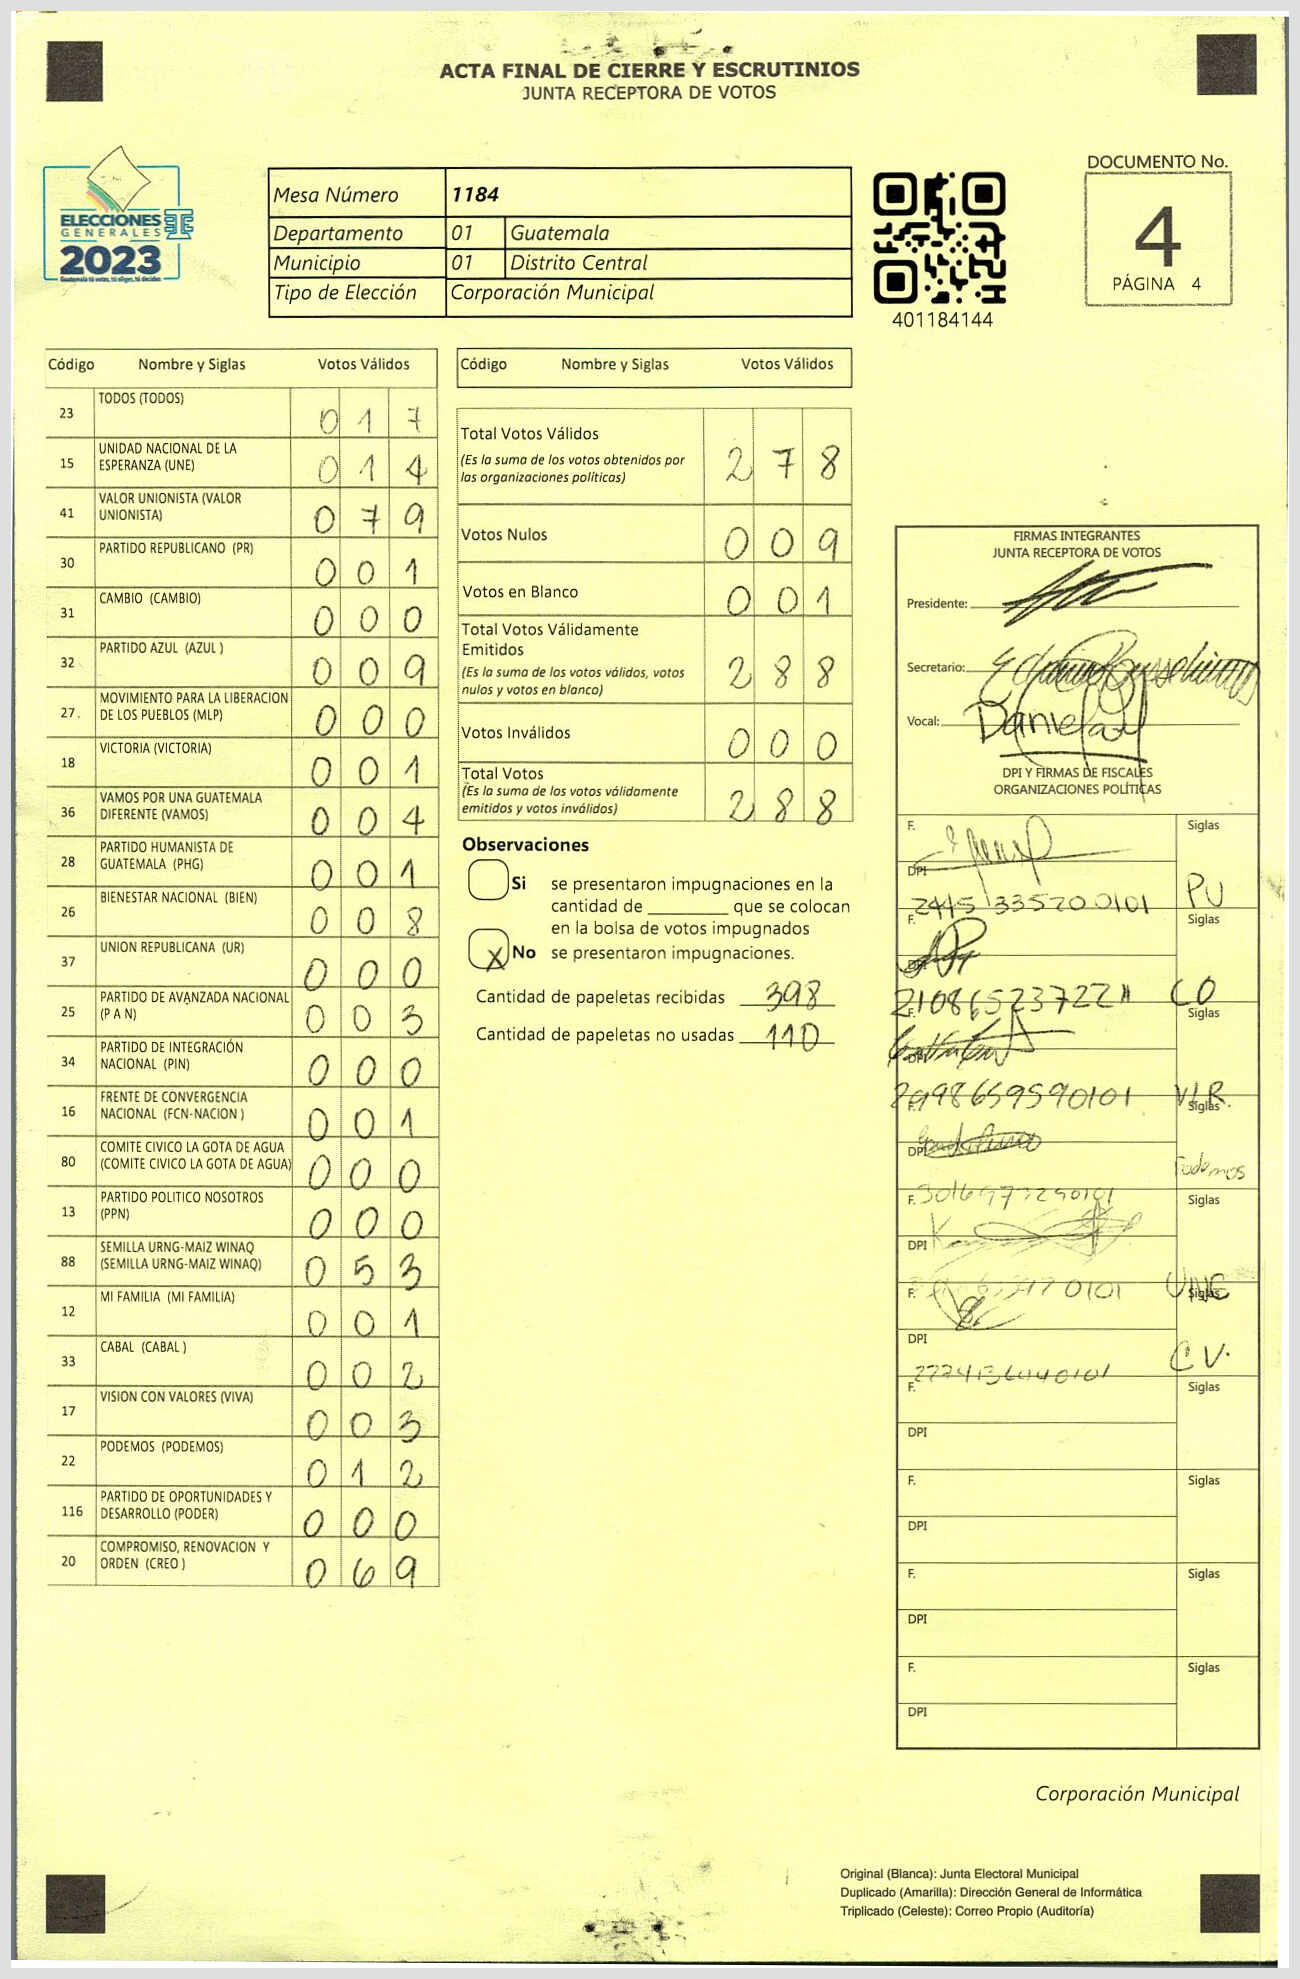 ACTA FINAL DE CIERRE Y ESCRUTINIOS
JUNTA RECEPTORA DE VOTOS
ELECCIONES
GENERALES
2023
Guatemala tú votas, tú eliges, tú decides
Mesa Número 1184
Departamento 01 Guatemala
Municipio 01 Distrito Central
Tipo de Elección Corporación Municipal
401184144
DOCUMENTO No.
4
PÁGINA 4
Código Nombre y Siglas Votos Válidos
23 TODOS (TODOS) 0 1 7
15 UNIDAD NACIONAL DE LA
ESPERANZA (UNE) 0 1 4
41 VALOR UNIONISTA (VALOR
UNIONISTA) 0 7 9
30 PARTIDO REPUBLICANO (PR) 0 0 1
31 CAMBIO (CAMBIO) 0 0 0
32 PARTIDO AZUL (AZUL ) 0 0 9
27. MOVIMIENTO PARA LA LIBERACION
DE LOS PUEBLOS (MLP) 0 0 0
18 VICTORIA (VICTORIA) 0 0 1
36 VAMOS POR UNA GUATEMALA
DIFERENTE (VAMOS) 0 0 4
28 PARTIDO HUMANISTA DE
GUATEMALA (PHG) 0 0 1
26 BIENESTAR NACIONAL (BIEN) 0 0 8
37 UNION REPUBLICANA (UR) 0 0 0
25 PARTIDO DE AVANZADA NACIONAL
(P A N) 0 0 3
34 PARTIDO DE INTEGRACIÓN
NACIONAL (PIN) 0 0 0
16 FRENTE DE CONVERGENCIA
NACIONAL (FCN-NACION ) 0 0 1
80 COMITE CIVICO LA GOTA DE AGUA
(COMITE CIVICO LA GOTA DE AGUA) 0 0 0
13 PARTIDO POLITICO NOSOTROS
(PPN) 0 0 0
88 SEMILLA URNG-MAIZ WINAQ
(SEMILLA URNG-MAIZ WINAQ) 0 5 3
12 MI FAMILIA (MI FAMILIA) 0 0 1
33 CABAL (CABAL ) 0 0 2
17 VISION CON VALORES (VIVA) 0 0 3
22 PODEMOS (PODEMOS) 0 1 2
116 PARTIDO DE OPORTUNIDADES Y
DESARROLLO (PODER) 0 0 0
20 COMPROMISO, RENOVACION Y
ORDEN (CREO ) 0 6 9
Código Nombre y Siglas Votos Válidos
Total Votos Válidos 2 7 8
(Es la suma de los votos obtenidos por
las organizaciones políticas)
Votos Nulos 0 0 9
Votos en Blanco 0 0 1
Total Votos Válidamente
Emitidos 2 8 8
(Es la suma de los votos válidos, votos
nulos y votos en blanco)
Votos Inválidos 0 0 0
Total Votos 2 8 8
(Es la suma de los votos válidamente
emitidos y votos inválidos)
Observaciones
Si se presentaron impugnaciones en la
cantidad de ________ que se colocan
en la bolsa de votos impugnados
X No se presentaron impugnaciones.
Cantidad de papeletas recibidas 398
Cantidad de papeletas no usadas 110
FIRMAS INTEGRANTES
JUNTA RECEPTORA DE VOTOS
Presidente:
Secretario:
Vocal:
DPI Y FIRMAS DE FISCALES
ORGANIZACIONES POLÍTICAS
F. Siglas
DPI PU
2445 33520 0101
F. Siglas
DPI CO
F. Siglas
DPI
2998659590101 VLR.
F. Siglas
DPI Podemos
F. Siglas
DPI
0101 UNE
F. Siglas
DPI CV.
F. Siglas
DPI
F. Siglas
DPI
F. Siglas
DPI
F. Siglas
DPI
Corporación Municipal
Original (Blanca): Junta Electoral Municipal
Duplicado (Amarilla): Dirección General de Informática
Triplicado (Celeste): Correo Propio (Auditoría)